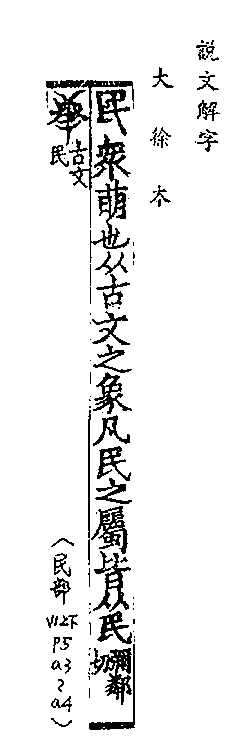 説文解字
大徐本
民衆萌也从古文之象凡民之屬皆从民彌鄰切
古文民
〈民部
VI12下
P5
a3
〜
a4〉